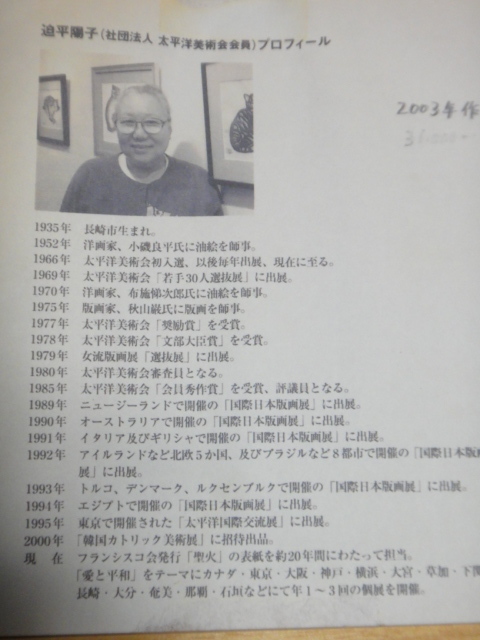 迫平陽子(社団法人 太平洋美術会会員)プロフィール
2003年作
36,000-
1935年 長崎市生まれ。
1952年 洋画家、小磯良平氏に油絵を師事。
1966年 太平洋美術会初入選、以後毎年出展、現在に至る。
1969年 太平洋美術会「若手30人選抜展」に出展。
1970年 洋画家、布施悌次郎氏に油絵を師事。
1975年 版画家、秋山巌氏に版画を師事。
1977年 太平洋美術会「奨励賞」を受賞。
1978年 太平洋美術会「文部大臣賞」を受賞。
1979年 女流版画展「選抜展」に出展。
1980年 太平洋美術会審査員となる。
1985年 太平洋美術会「会員秀作賞」を受賞、評議員となる。
1989年 ニュージーランドで開催の「国際日本版画展」に出展。
1990年 オーストラリアで開催の「国際日本版画展」に出展。
1991年 イタリア及びギリシャで開催の「国際日本版画展」に出展。
1992年 アイルランドなど北欧5か国、及びブラジルなど8都市で開催の「国際日本版画
展」に出展。
1993年 トルコ、デンマーク、ルクセンブルクで開催の「国際日本版画展」に出展。
1994年 エジプトで開催の「国際日本版画展」に出展。
1995年 東京で開催された「太平洋国際交流展」に出展。
2000年 「韓国カトリック美術展」に招待出品。
現 在 フランシスコ会発行「聖火」の表紙を約20年間にわたって担当。
「愛と平和」をテーマにカナダ・東京・大阪・神戸・横浜・大宮・草加・下関
長崎・大分・奄美・那覇・石垣などにて年1~3回の個展を開催。